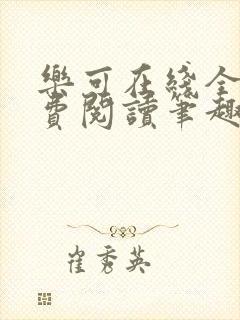 樂可在綫全
費閱讀筆趣
崔秀英